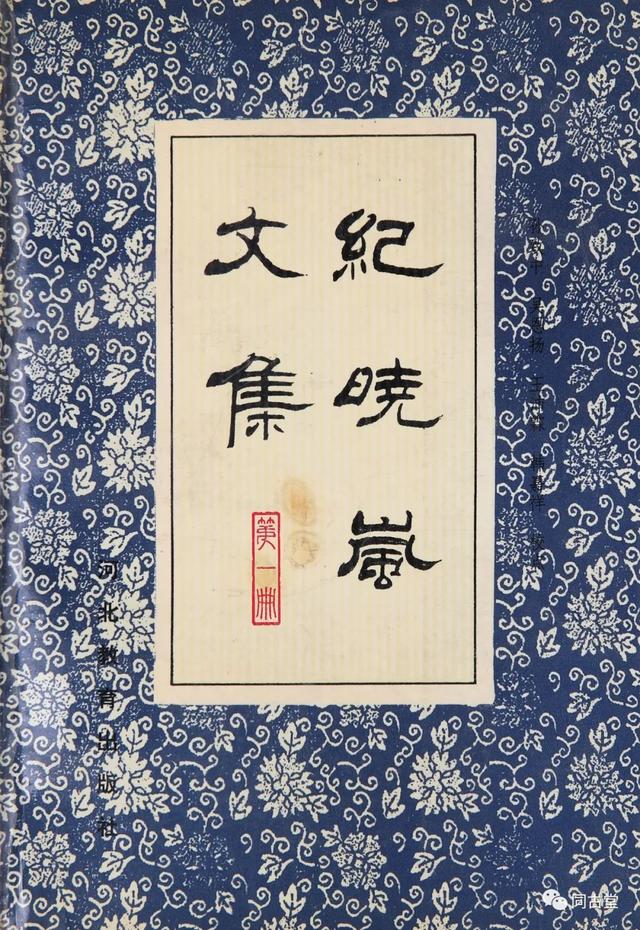 孙致中 吴恩扬 王沛霖 韩嘉祥 校点
紀曉嵐
文集
第一冊
河北教育出版社
同古堂